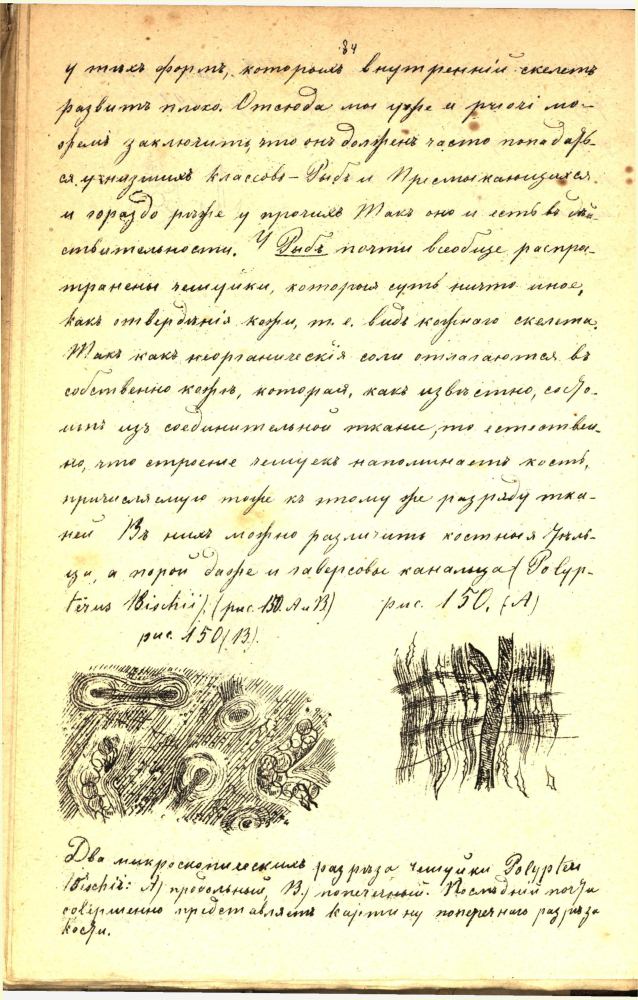 84
у тѣхъ формъ, которыхъ внутренній скелетъ
развитъ плохо. Отсюда мы уже a priori мо-
жемъ заключить, что онъ долженъ часто попадать-
ся у низшихъ классовъ – Рыбъ и Пресмыкающихся
и гораздо рѣже у прочихъ Такъ оно и есть въ дѣй
ствительности. У Рыбъ почти всеобще распро-
транены чешуйки, которыя суть ничто иное,
какъ отвердѣнія кожи, т. е. видъ кожнаго скелета.
Такъ какъ неорганическія соли отлагаются въ
собственно кожѣ, которая, какъ извѣстно, состо-
итъ изъ соединительной ткани, то естествен-
но, что строеніе чешуекъ напоминаетъ кость,
причисляемую тоже къ этому же разряду тка-
ней Въ нихъ можно различить костныя тѣль-
ца, а порой даже и гаверсовы канальца (Polyp-
terus Bischii) (рис. 150. А и В) рис. 150. (А)
рис. 150 (В).
Два микроскопическихъ разрѣза чешуйки Polypteri
Bischii: А) продольный, В) поперечный. Послѣдній почти
совершенно представляетъ картину поперечнаго разрѣза
кости.